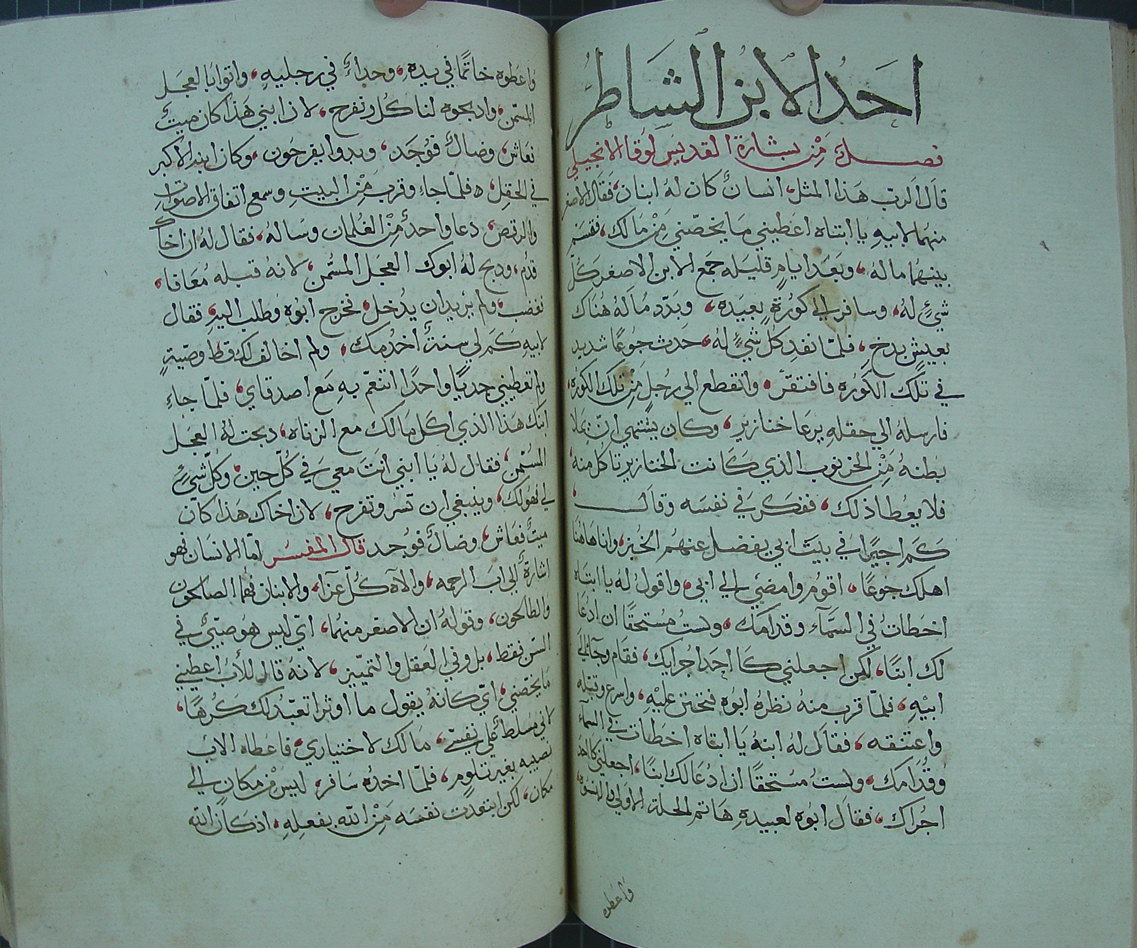 احد الابن الشاطر
فصل من بشارة القديس لوقا الانجيلي
قال الرب هذا المثل انسان كان له ابنان فقال الاصغر
منهما لابيه يا ابتاه اعطيني ما يخصّني من مالك، فقسم
بينهما ماله، وبعد ايام قليله جمع الابن الاصغر كلّ
شيءٍ له، وسافر الي كورةٍ بعيده، وبدّد ماله هناك
بعيش بدخ، فلمّا نفد كل شيءٍ له، حدث جوعًا شديد
في تلك الكوره فافتقر، وانقطع الي رجلٍ من تلك الكوره
فارسله الي حقله يرعا خنازير، وكان يشتهي ان يملا
بطنه من الخرنوب الذي كانت الخنازير تاكل منه
فلا يعطا ذلك، ففكر في نفسه وقال
كم اجيرًا في بيت ابي يفضل عنهم الخبز، وانا هاهنا
اهلك جوعًا، اقوم وامضي الي ابي، واقول له يا ابتاه
اخطات في السمآء وقدامك، ولست مستحقًا ان ادعا
لك ابنًا، لكن اجعلني كاحد اجرايك، فقام وجآ الي
ابيه، فلمّا قرب منه نظره ابوه فتحنن عليه، واسرع وقبله
واعتنقه، فقال له ابنه يا ابتاه اخطات في السمآء
وقدامك، ولست مستحقًا ان ادعا لك ابنًا، اجعلني كاحد
اجراك، فقال ابوه لعبيده هاتم الحلة الاولي والبسوه
واعطوه
واعطوه خاتمًا في يده، وحداءً في رجليه، واتوا بالعجل
المثمن، وادبحوه لناكل ونفرح، لان ابني هذا كان ميتًا
فعاش، وضالًا فوجد، وبدوا يفرحون، وكان ابنه الاكبر
في الحقل، فلمّا جاء وقرب من البيت وسمع اتفاق الاصوات
والرقص، دعا واحدًا من الغلمان وساله، فقال له ان اخاك
قدم، ودبح له ابوك العجل المسمّن، لانه قبله معافا،
فغضب ولم يريد ان يدخل، فخرج ابوه وطلب اليه، فقال
لابيه كم لي سنةً اخدمك، ولم اخالف لك قط وصيةٍ
ولم تعطيني جديًا واحدًا اتنعّم به مع اصدقاي، فلمّا جاء
ابنك هذا الذي اكل مالك مع الزناه، دبحت له العجل
المسمّن، فقال له يا ابني انت معي في كلّ حين، وكلّ شيءٍ
لي فهو لك، وينبغي ان تسر وتفرح، لان اخاك هذا كان
ميتًا فعاش، وضالًا فوجد قال المفسر امّا الانسان فهو
اشارةً الي اب الرحمه، والاه كل عزآ، والابنان فهما الصالحون
والطالحون، وقوله ان الاصغر منهما، اي ليس هو صبيّ في
السن فقط، بل وفي العقل والتمييز، لانه قال للاب اعطيني
ما يخصني، اي كانه يقول ما اوثر اتعبد لك كرهًا،
مالك لاختياري، فاعطاه الاب
نصيبه بغير تلوم، فلمّا اخده سافر، ليس من مكانٍ الي
مكان، لكن ابتعدت نفسه من الله بفعله، اذ كان الله